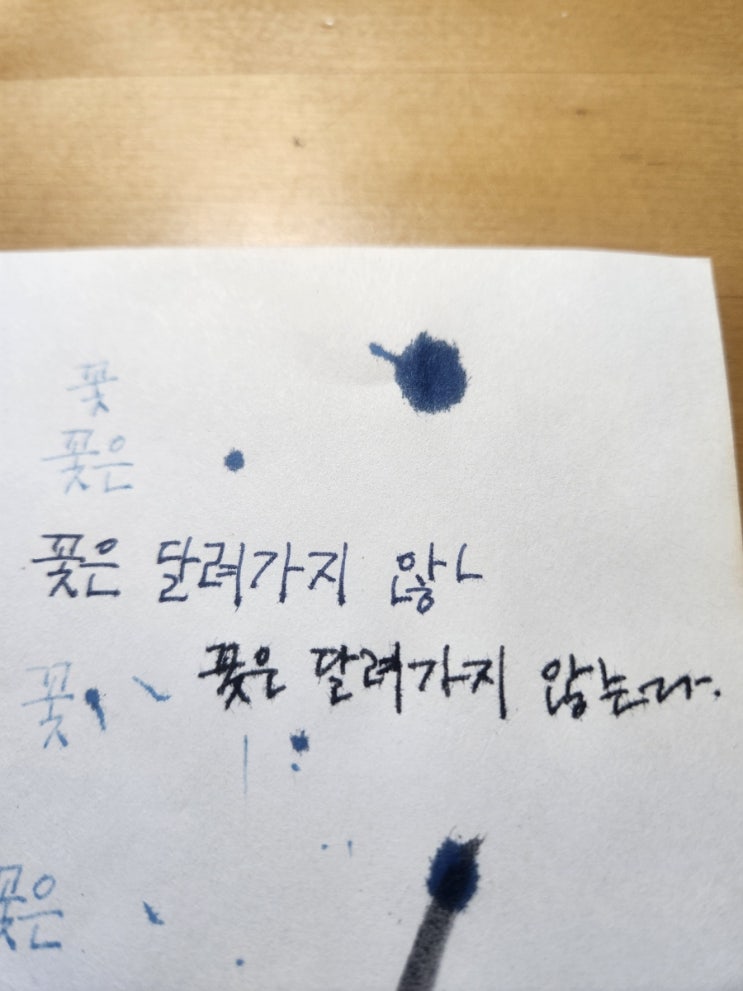 꽃
꽃은
꽃은 달려가지 않ㄴ
꽃 꽃은 달려가지 않는다.
꽃은